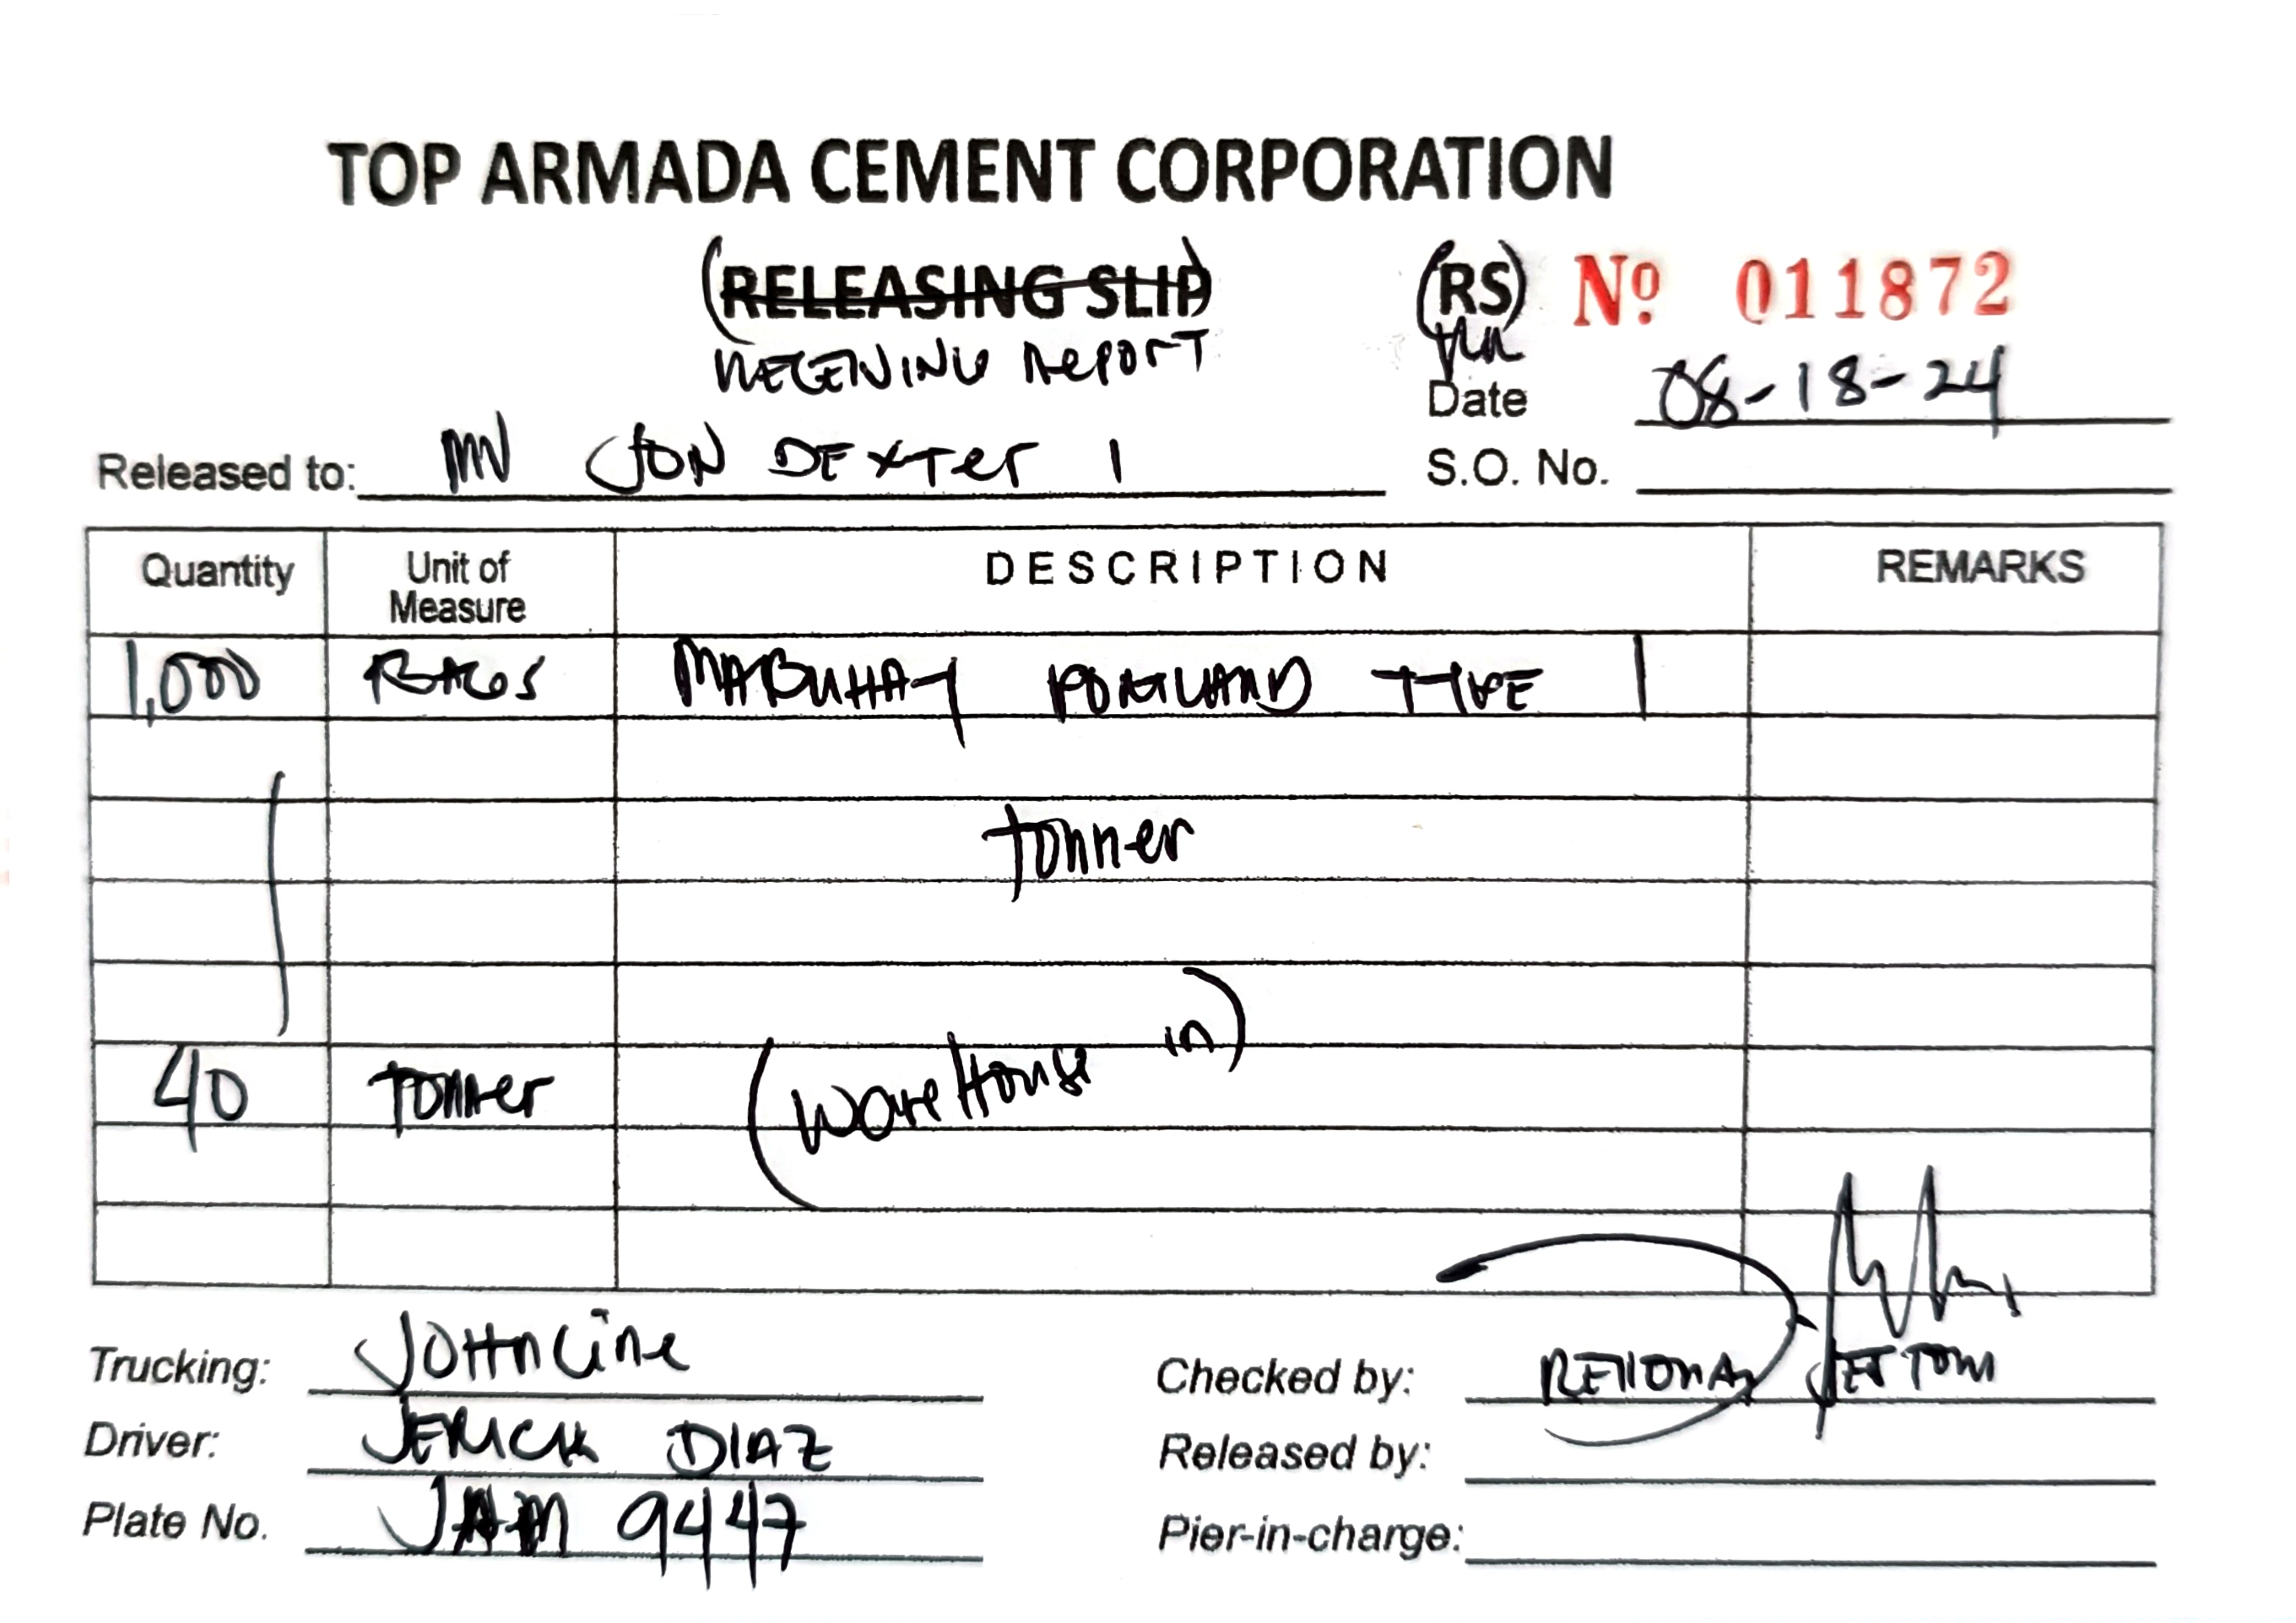 TOP ARMADA CEMENT CORPORATION
(RELEASING SLIP) (RS) Nº 011872
RECEIVING REPORT RR
Date 08-18-24
Released to: MV JON DEXTER 1 S.O. No.
Quantity Unit of Measure DESCRIPTION REMARKS
1,000 BAGS MABUHAY PORTLAND TYPE 1
Tonner
(WareHouse in)
40 Tonner
Trucking: JOHNLINE Checked by: JETTOM
Driver: JERICK DIAZ Released by:
Plate No. JAM 9447 Pier-in-charge: